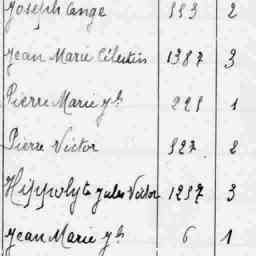 Joseph Cange 553 2
Jean Marie Célestin 1387 3
Pierre Marie yh 221 1
Pierre Victor 527 2
Hippolyte Jules Victor 1257 3
Jean Marie yh 6 1